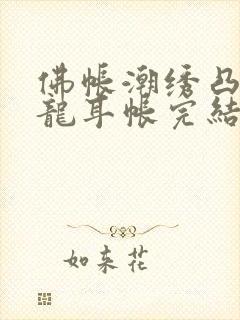 佛帳潮绣凸
龍耳帳完結
如来花